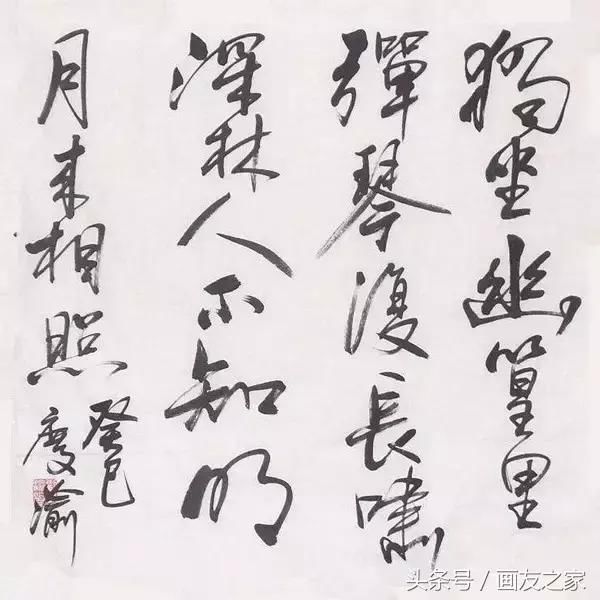 獨坐幽篁里
彈琴復長嘯
深林人不知明
月来相照
癸巳
渝
头条号 / 画友之家